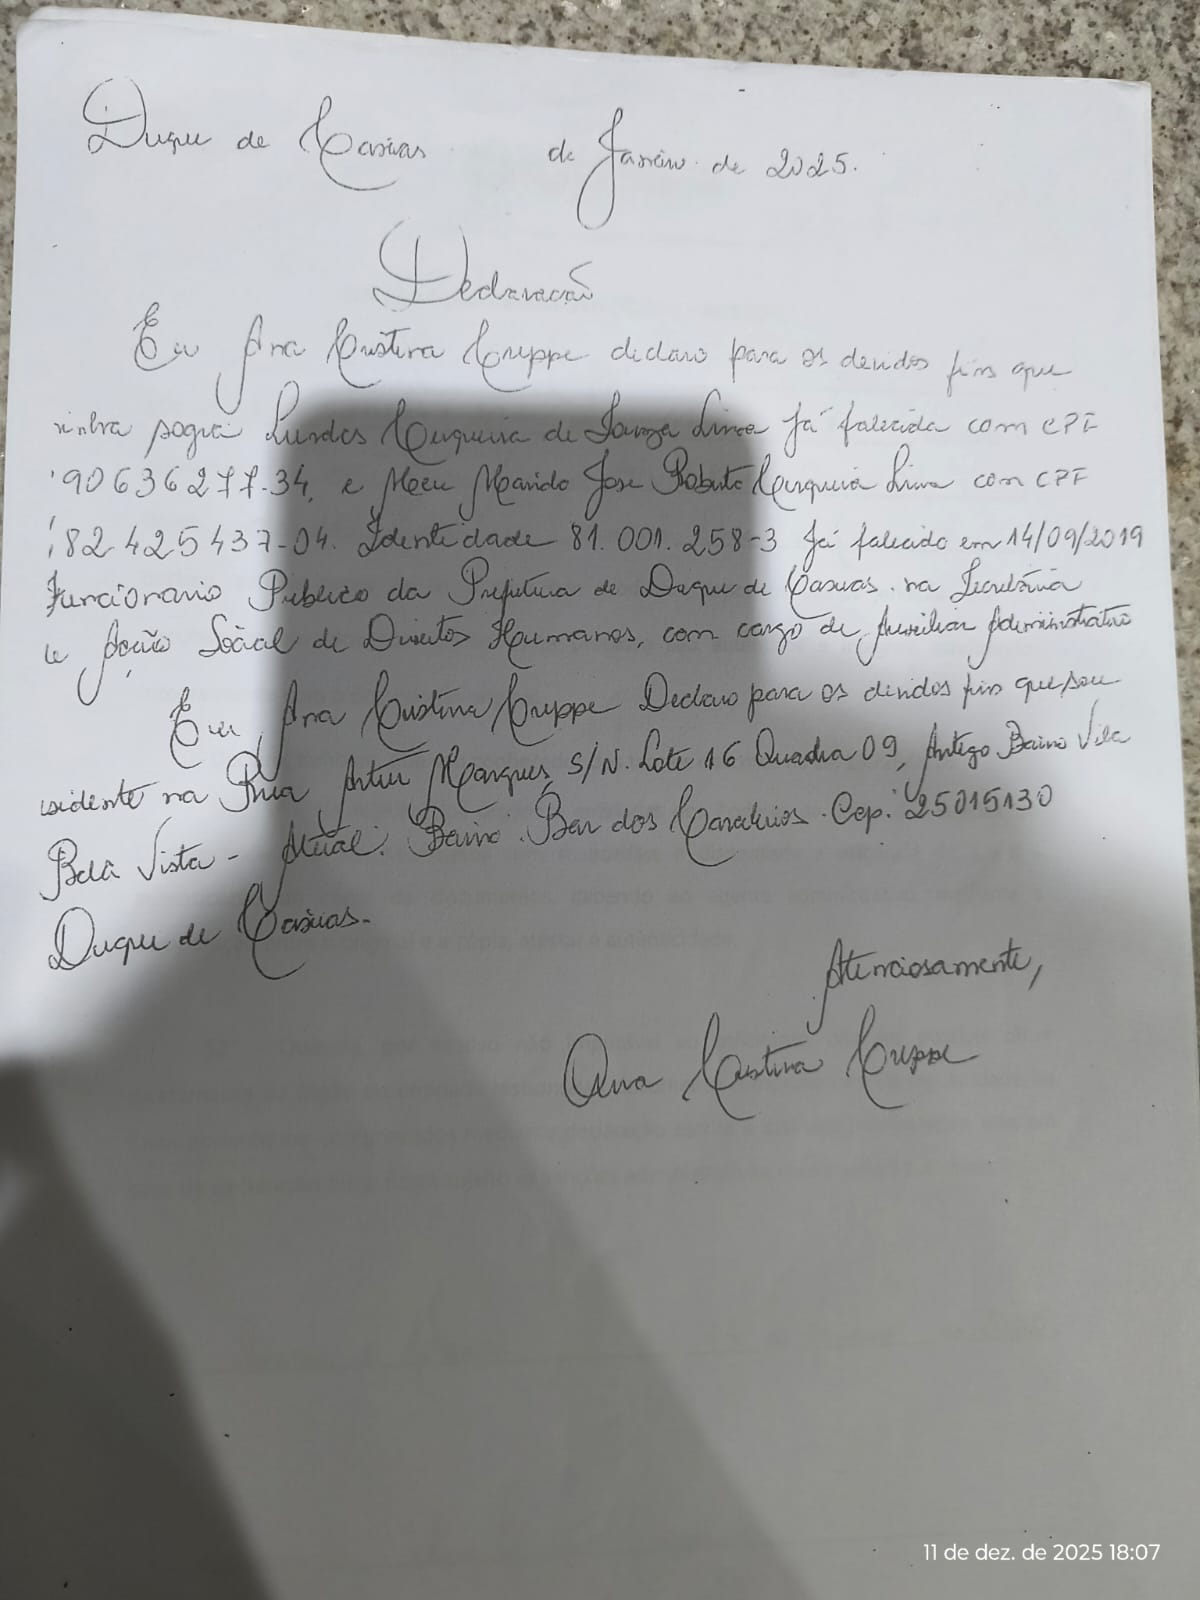 Duque de Caxias de Janeiro de 2025.
Declaração
Eu Ana Cristina Cruppe declaro para os devidos fins que
minha sogra Lurdes Cerqueira de Souza Lima Já falecida com CPF
90636277-34, e Meu Marido Jose Roberto Cerqueira Lima com CPF
182425437-04. Identidade 81.001.258-3 Já falecido em 14/09/2019
Funcionario Publico da Prefeitura de Duque de Caxias na Secretária
de Ação Social de Direitos Humanos, com cargo de Auxiliar Administrativo
Eu Ana Cristina Cruppe Declaro para os devidos fins que sou
residente na Rua Artur Marques, S/N. Lote 16 Quadra 09, Antigo Bairro Vila
Bela Vista - Atual: Bairro: Bar dos Cavaleiros. Cep: 25015130
Duque de Caxias.
Atenciosamente,
Ana Cristina Cruppe
11 de dez. de 2025 18:07